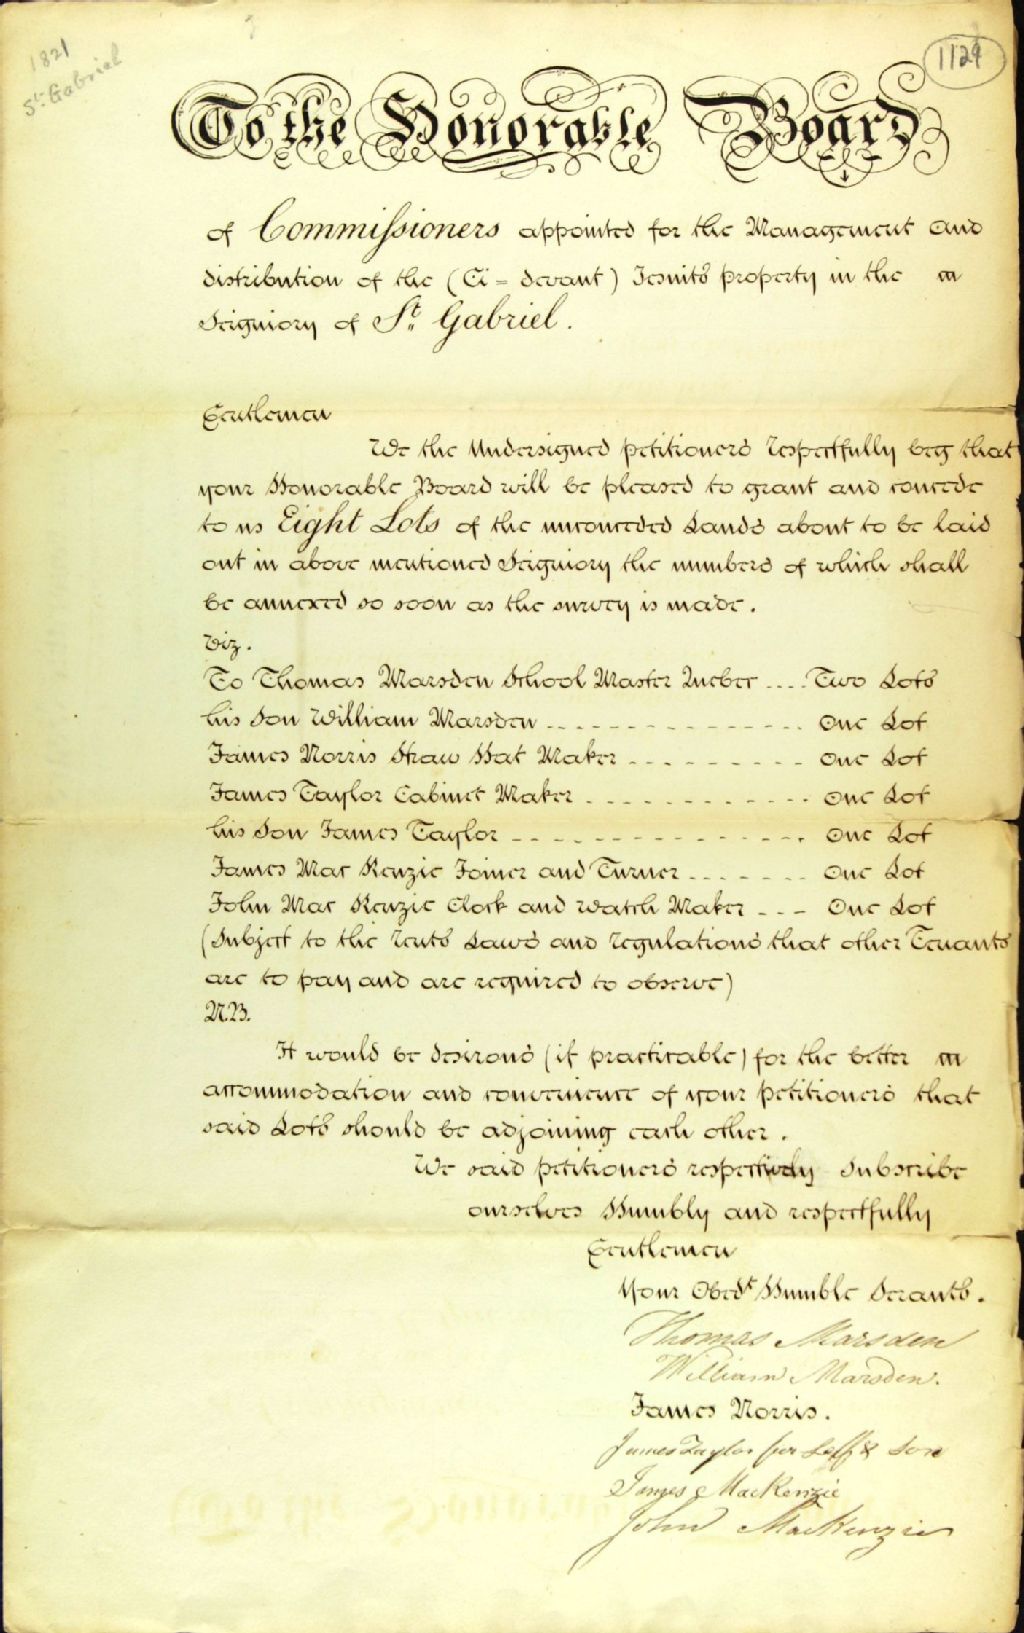 1821
St. Gabriel
1124
To the Honorable Board
of Commissioners appointed for the Management and
distribution of the (Ci = devant) Jesuits property in the
Seigniory of St. Gabriel.
Gentlemen
We the Undersigned petitioners respectfully beg that
your Honorable Board will be pleased to grant and concede
to us Eight Lots of the unconceded Lands about to be laid
out in above mentioned Seigniory the numbers of which shall
be annexed so soon as the survey is made.
Viz.
To Thomas Marsden School Master Quebec .... Two Lots
his Son William Marsden - - - - - - - - - - - - - - One Lot
James Norris Straw Hat Maker - - - - - - - - - - One Lot
James Taylor Cabinet Maker - - - - - - - - - - - - One Lot
his Son James Taylor - - - - - - - - - - - - - - - - One Lot
James Mac Kenzie Joiner and Turner - - - - - - - One Lot
John Mac Kenzie Clock and Watch Maker - - - One Lot
(Subject to the rents Laws and regulations that other Tenants
are to pay and are required to observe)
N.B.
It would be desirous (if practicable) for the better
accommodation and convenience of your petitioners that
said Lots should be adjoining each other.
We said petitioners respectively subscribe
ourselves Humbly and respectfully
Gentlemen
Your Obedt Humble Servants.
Thomas Marsden
William Marsden.
James Norris.
James Taylor for Self & Son
James MacKenzie
John MacKenzie